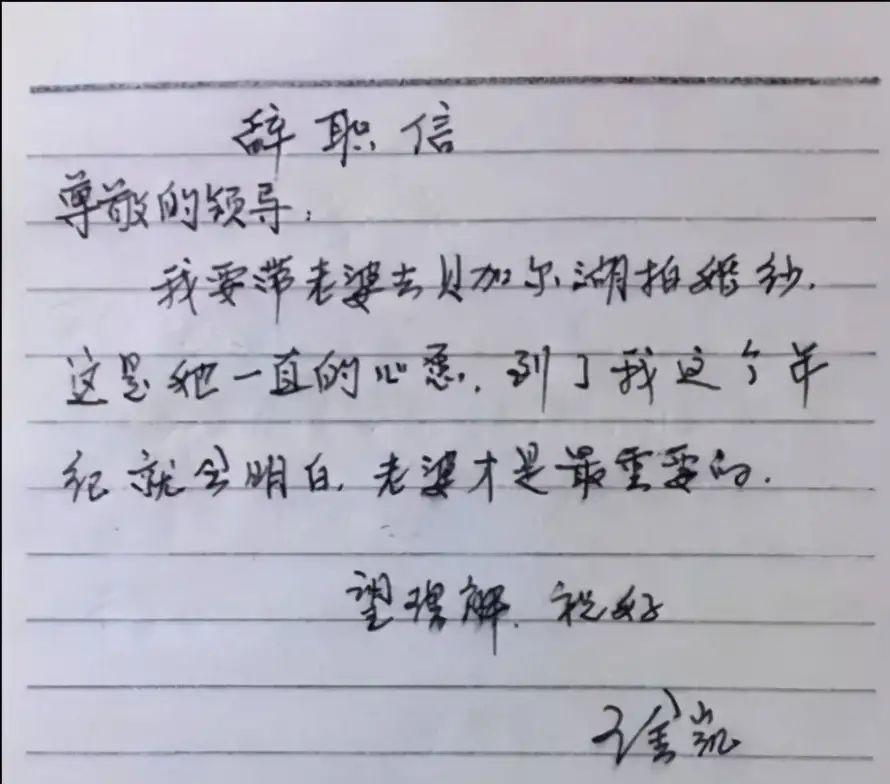 辞职信
尊敬的领导:
我要带老婆去贝加尔湖拍婚纱.
这是她一直的心愿,到了我这个年
纪就会明白,老婆才是最重要的.
望理解.祝好
徐凯